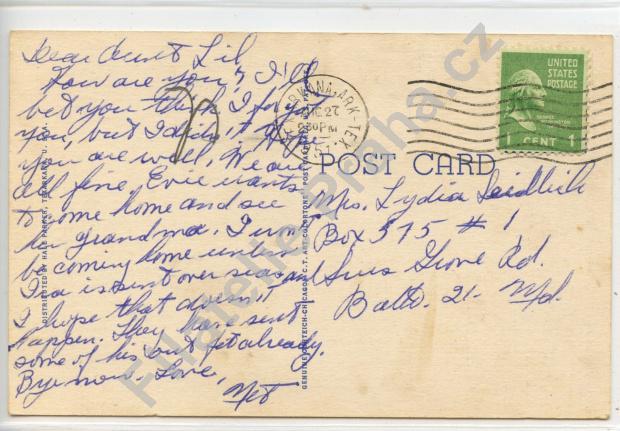 Dear Aunt Lil
How are you? I'll
bet you think I forgot
you, but I didn't. Hope
you are well. We are
all fine. Evie wants
to come home and see
her grandma. I won't
be coming home unless
Ira is sent over seas and
I hope that doesn't
happen. They have sent
some of his outfit already.
Bye now. Love,
TEXARKANA, ARK.-TEX.
27
230PM
UNITED
STATES
POSTAGE
GEORGE WASHINGTON
1 CENT 1
POST CARD
Mrs. Lydia
Box 575 #1
Grove Rd.
Balto. 21. Md.
DISTRIBUTED BY HALE PEPPER, TEXARKANA, U. S. A.
GENUINE CURTEICH-CHICAGO "C. T. ART-COLORTONE" POST CARD
Filatelie-Praha.cz